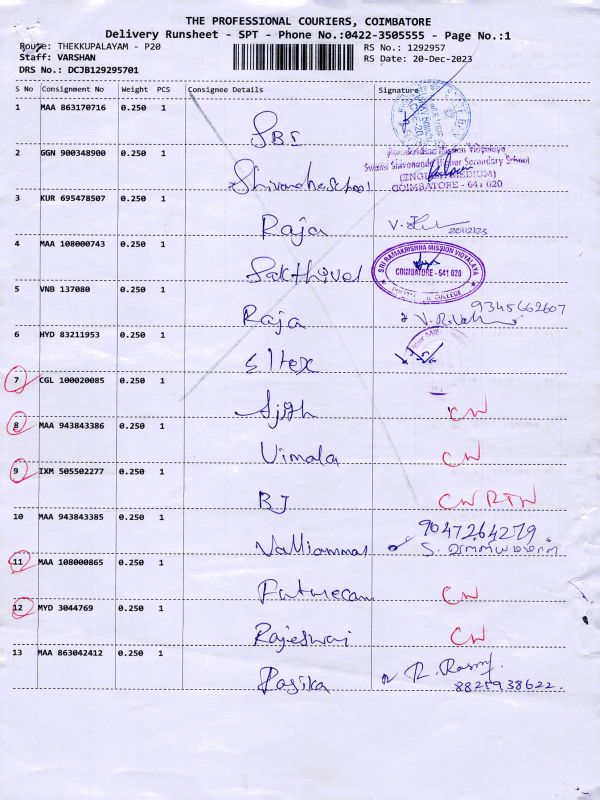 THE PROFESSIONAL COURIERS, COIMBATORE
Delivery Runsheet - SPT - Phone No.:0422-3505555 - Page No.:1
Route: THEKKUPALAYAM - P20
RS No.: 1292957
Staff: VARSHAN
RS Date: 20-Dec-2023
DRS No.: DCJB129295701
S No Consignment No Weight PCS Consignee Details Signature
1 MAA 863170716 0.250 1
SBI
2 GGN 900348900 0.250 1
Ramakrishna Mission Vidyalaya
Swami Shivananda Higher Secondary School
(ENGLISH MEDIUM)
COIMBATORE - 641 020
3 KUR 695478507 0.250 1
Raja V. 20/12/23
4 MAA 108000743 0.250 1
Sakthivel
SRI RAMAKRISHNA MISSION VIDYALAYA
COIMBATORE - 641 020
COLLEGE
5 VNB 137080 0.250 1
9345662607
Raja
6 HYD 83211953 0.250 1
Eltex
7 CGL 100020085 0.250 1
CN
8 MAA 943843386 0.250 1
Vimala CN
9 IXM 505502277 0.250 1
BJ CN RTN
10 MAA 943843385 0.250 1
9047264279
Valliammal
11 MAA 108000865 0.250 1
Futurecam CN
12 MYD 3044769 0.250 1
Rajeswari CN
13 MAA 863042412 0.250 1
Rasika